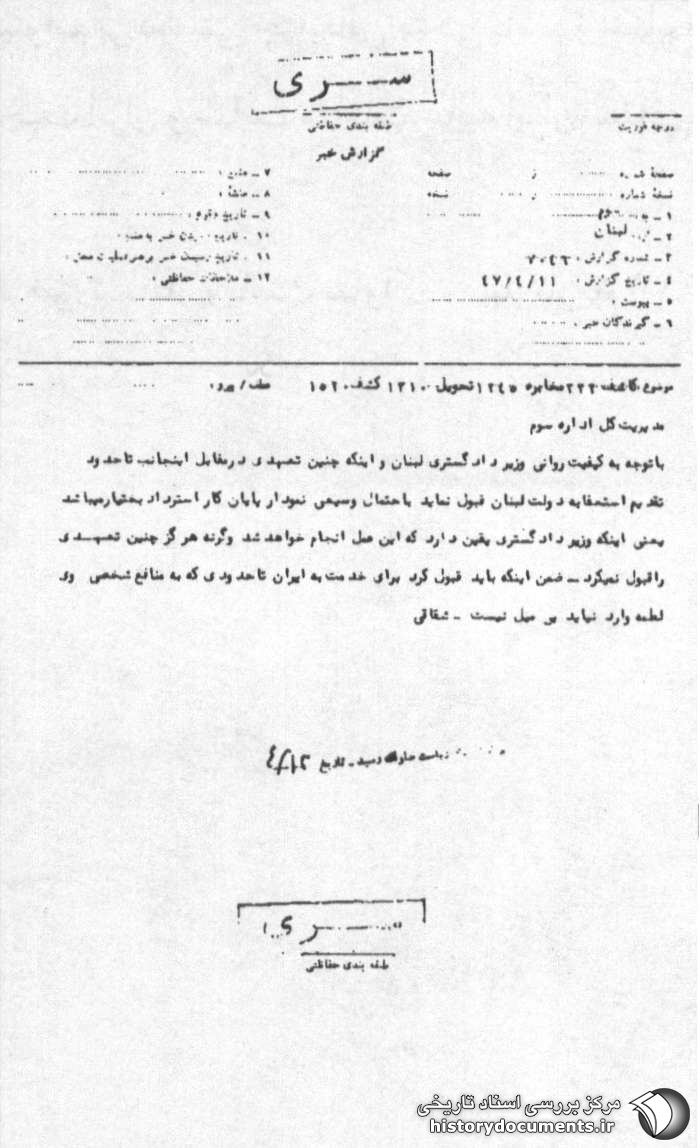 سری
طبقه بندی حفاظتی
درجه فوریت
گزارش خبر
صفحه شماره از صفحه
نسخه شماره از نسخه
۱ ـ به سوم
۲ ـ لبنان
۳ ـ شماره گزارش :
۴ ـ تاریخ گزارش : ۴۷/۴/۱۱
۵ ـ پیوست :
۶ ـ گیرندگان خبر :
۷ ـ منبع :
۸ ـ منشأ :
۹ ـ تاریخ وقوع :
۱۰ ـ تاریخ رسیدن خبر به منبع :
۱۱ ـ تاریخ رسیدن خبر برهبر عملیات محل :
۱۲ ـ ملاحظات حفاظتی :
موضوع کاشف ۲۳۳ مخابره ۱۲۴۵ تحویل ۱۳۱۰ کشف ۱۵۲۰
عطف / پیرو :
مدیریت کل اداره سوم
باتوجه به کیفیت روانی وزیر دادگستری لبنان و اینکه چنین تعهدی در مقابل اینجانب تاحدود
تقدیم استعفا به دولت لبنان قبول نماید باحتمال وسیعی نمودار پایان کار استرداد بختیار میباشد
یعنی اینکه وزیر دادگستری یقین دارد که این عمل انجام خواهد شد وگرنه هرگز چنین تعهدی
را قبول نمیکرد ـ ضمن اینکه باید قبول کرد برای خدمت به ایران تاحدودی که به منافع شخصی وی
لطمه وارد نیاید بی میل نیست ـ شقاقی
ریاست ساواک رسید ـ تاریخ
سری
طبقه بندی حفاظتی
مرکز بررسی اسناد تاریخی
historydocuments.ir